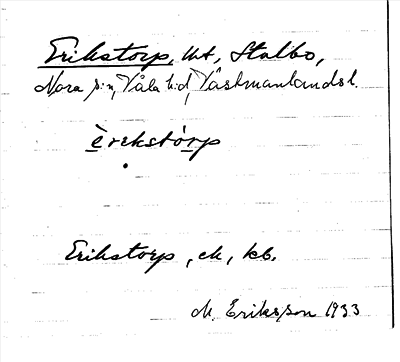 Erikstorp, ut, Stalbo,
Nora sn, Våla hd, Västmanlands l.
èrekstórp
Erikstorp, ek, kb.
M. Eriksson 1933